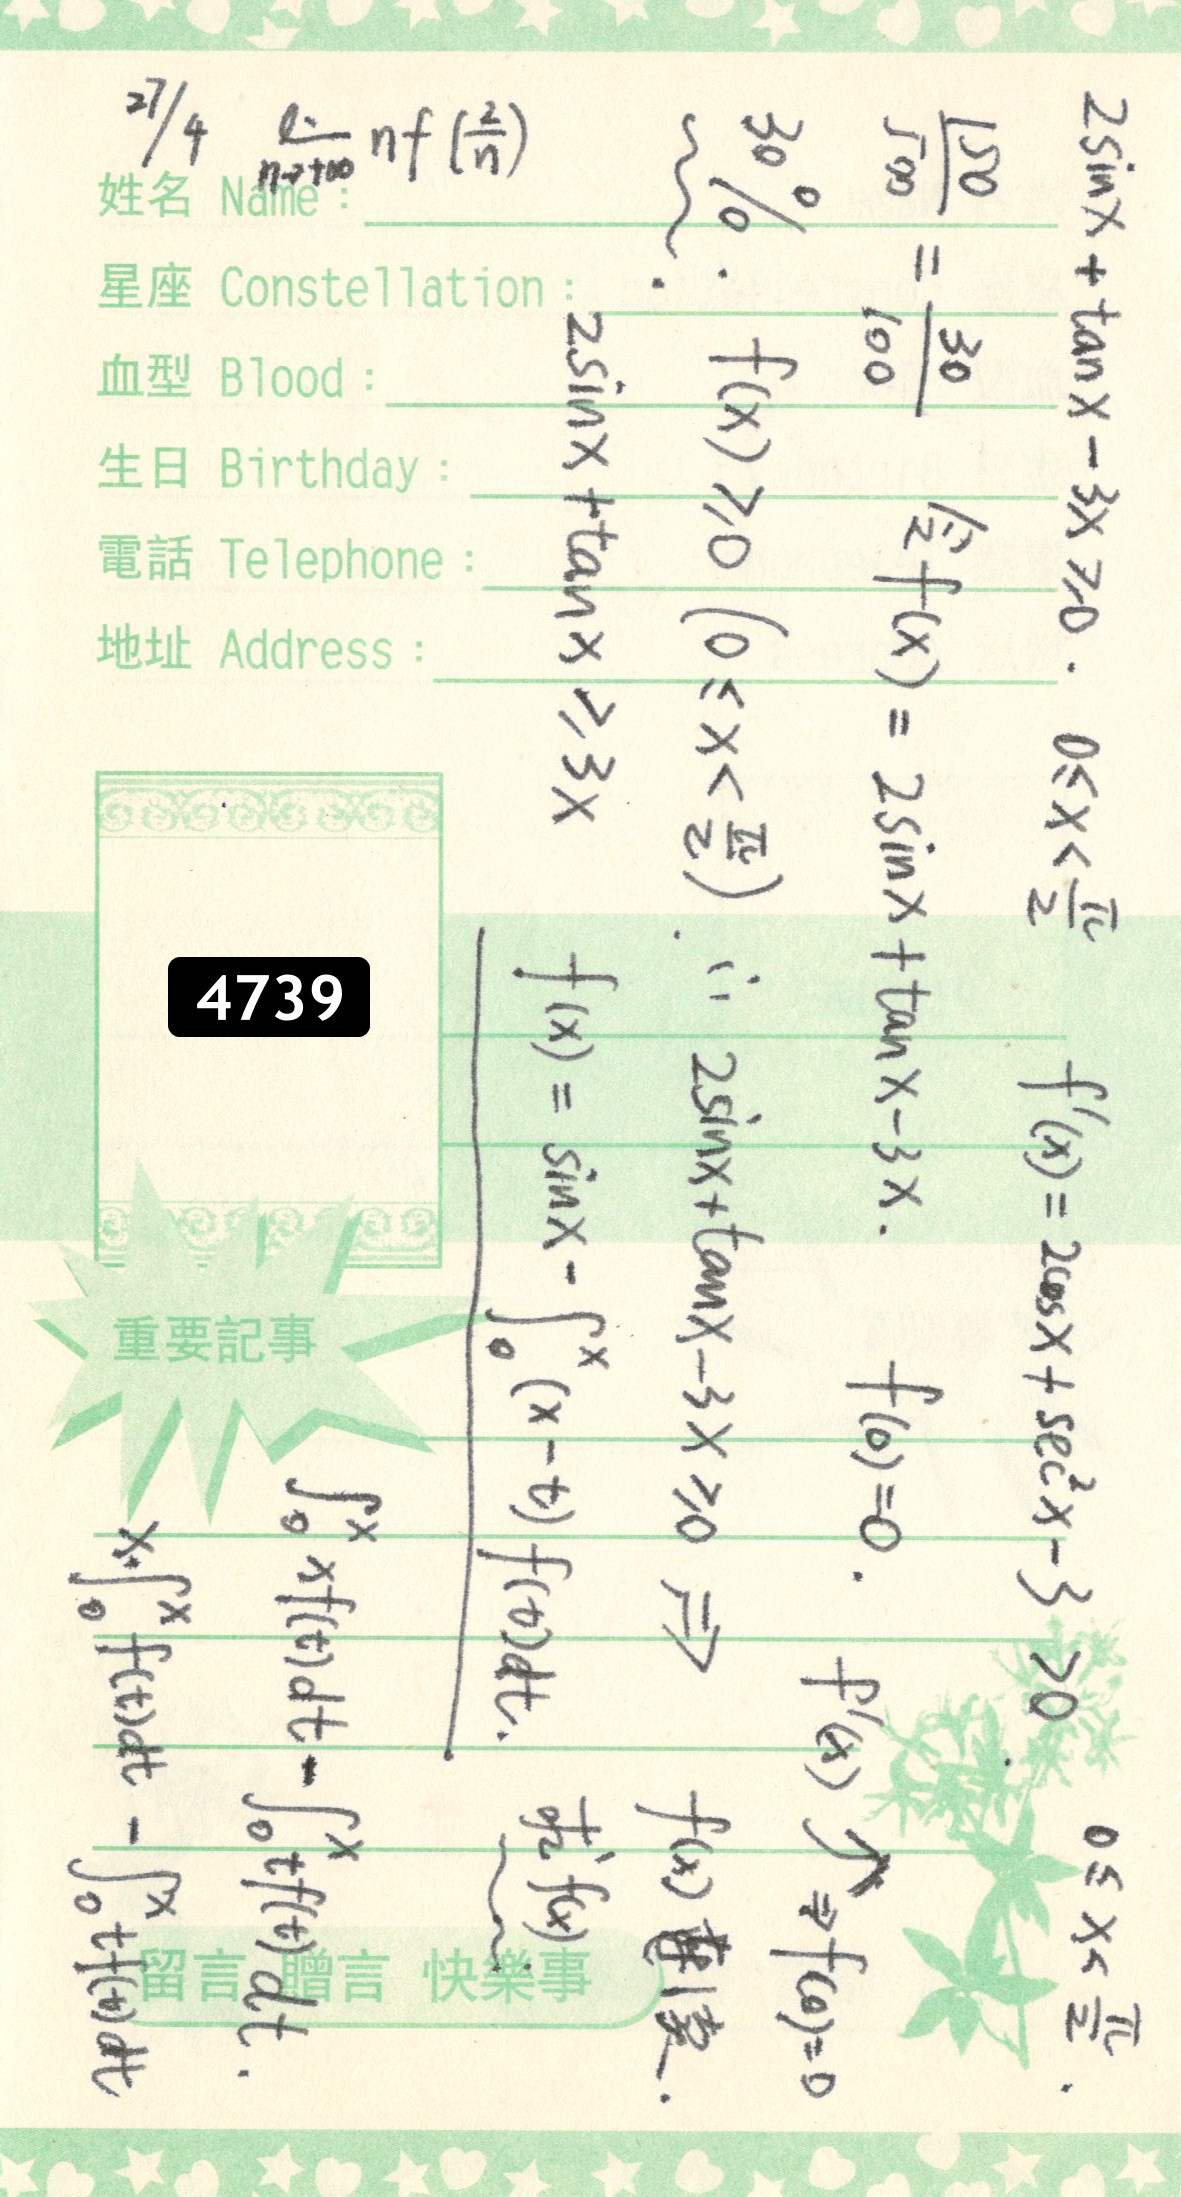 27/4 lim n→+∞ nf(2/n)
姓名 Name：
星座 Constellation：
血型 Blood：
生日 Birthday：
電話 Telephone：
地址 Address：
4739
重要記事
留言 贈言 快樂事
2sinx+tanx-3x≥0. 0≤x<π/2 f'(x)=2cosx+sec²x-3>0 0≤x<π/2.
150/500=30/100 设f(x)=2sinx+tanx-3x. f(0)=0. f'(x)↗⇒f(0)=0
30%. f(x)≥0 (0≤x<π/2). ∴ 2sinx+tanx-3x≥0 ⇒ f(x)
2sinx+tanx≥3x
f(x)=sinx-∫₀ˣ(x-t)f(t)dt. 求f(x)
∫₀ˣxf(t)dt-∫₀ˣtf(t)dt.
x·∫₀ˣf(t)dt-∫₀ˣtf(t)dt